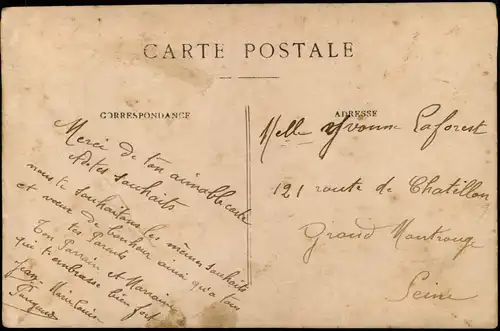 CARTE POSTALE
CORRESPONDANCE
ADRESSE
Merci de ton aimable carte
et tes souhaits
nous te souhaitons les mêmes souhaits
et vœux de bonheur ainsi qu'a tous
tes Parents
Ton Parrain et Marraine
qui t'embrasse bien fort
Jean Marie Louise
Melle Yvonne Laforest
121 route de Chatillon
Grand Montrouge
Seine